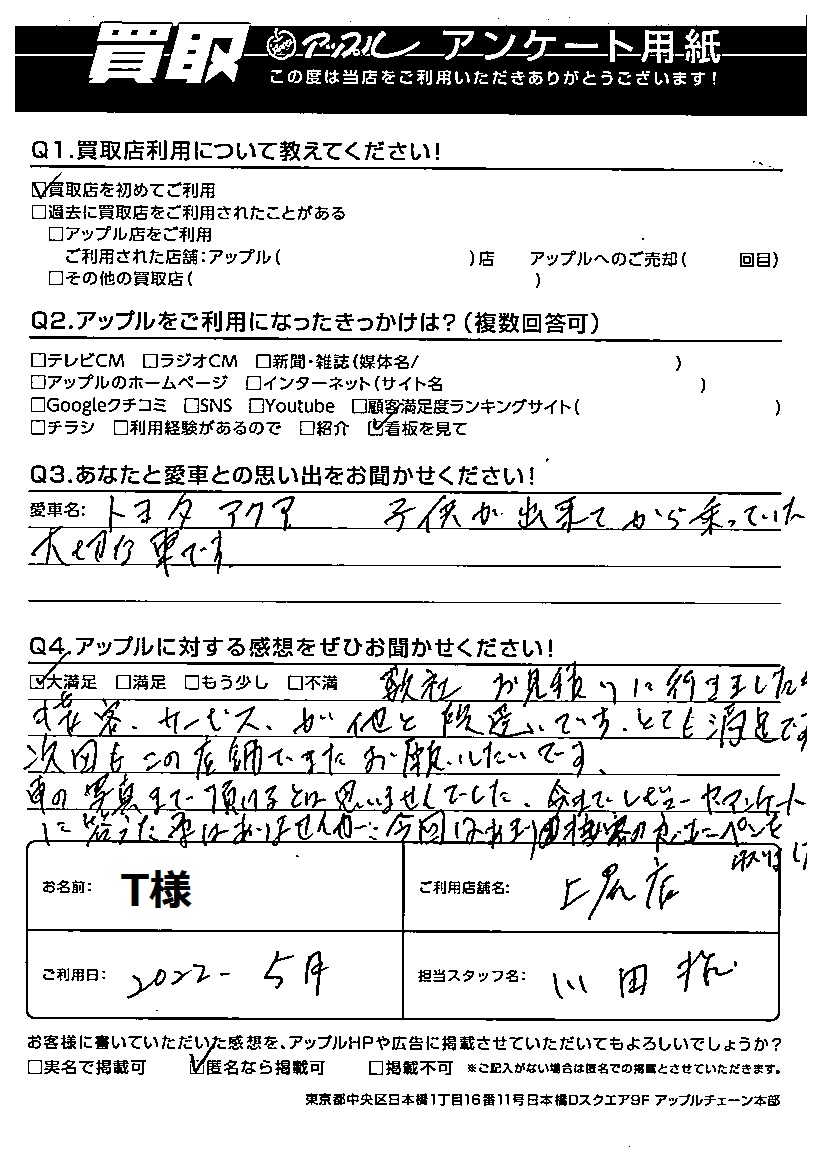 買取 アップル アンケート用紙
この度は当店をご利用いただきありがとうございます！
Q1.買取店利用について教えてください！
☑買取店を初めてご利用
□過去に買取店をご利用されたことがある
□アップル店をご利用
ご利用された店舗：アップル（ ）店 アップルへのご売却（ 回目）
□その他の買取店（ ）
Q2.アップルをご利用になったきっかけは？（複数回答可）
□テレビCM □ラジオCM □新聞・雑誌（媒体名/ ）
□アップルのホームページ □インターネット（サイト名 ）
□Googleクチコミ □SNS □Youtube □顧客満足度ランキングサイト（ ）
□チラシ □利用経験があるので □紹介 ☑看板を見て
Q3.あなたと愛車との思い出をお聞かせください！
愛車名： トヨタ アクア 子供が出来てから乗っていた
大切な車です
Q4.アップルに対する感想をぜひお聞かせください！
☑大満足 □満足 □もう少し □不満 数社 お見積りに行きました
接客、サービス、が他と段違いです。とても満足です
次回もこの店舗でまたお願いしたいです、
車の写真まで頂けるとは思いませんでした、今までレビューやアンケート
に答えた事はありませんが… 今回はあまりの接客の良さにペンを
取りま
お名前： T様 ご利用店舗名： 上尾店
ご利用日： 2022- 5月 担当スタッフ名： 川田様
お客様に書いていただいた感想を、アップルHPや広告に掲載させていただいてもよろしいでしょうか？
□実名で掲載可 ☑匿名なら掲載可 □掲載不可 ※ご記入がない場合は匿名での掲載とさせていただきます。
東京都中央区日本橋1丁目16番11号日本橋Dスクエア9F アップルチェーン本部